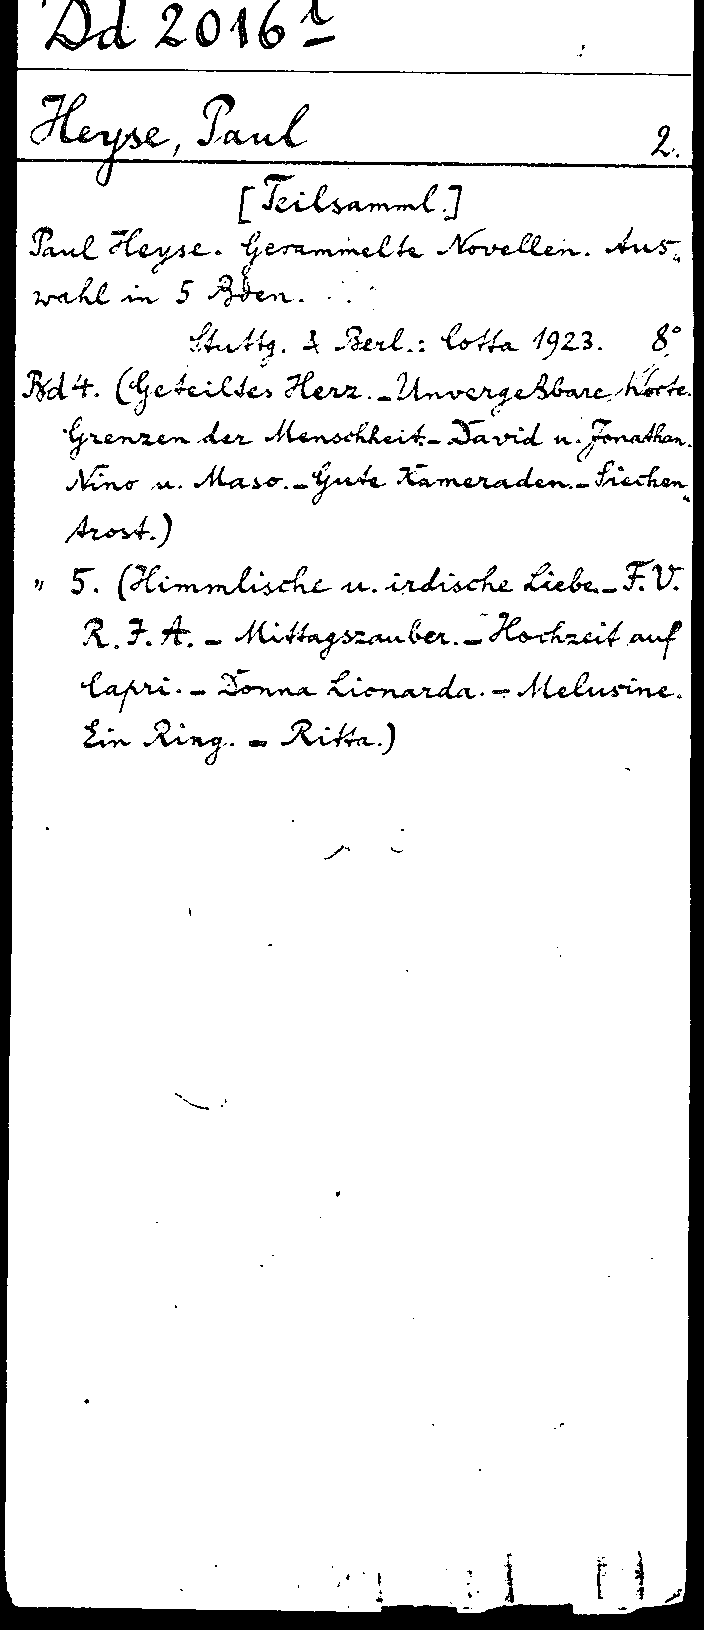 Dd 2016
Heyse, Paul 2.
[Teilsamml.]
Paul Heyse. Gesammelte Novellen. Aus-
wahl in 5 Bden.
Stuttg. & Berl.: Cotta 1923. 8°
Bd 4. (Geteiltes Herz. - Unvergeßbare Worte.
Grenzen der Menschheit. - David u. Jonathan.
Nino u. Maso. - Gute Kameraden. - Siechen-
trost.)
" 5. (Himmlische u. irdische Liebe. - F. V.
R. I. A. - Mittagszauber. - Hochzeit auf
Capri. - Donna Lionarda. - Melusine.
Ein Ring. - Ritta.)